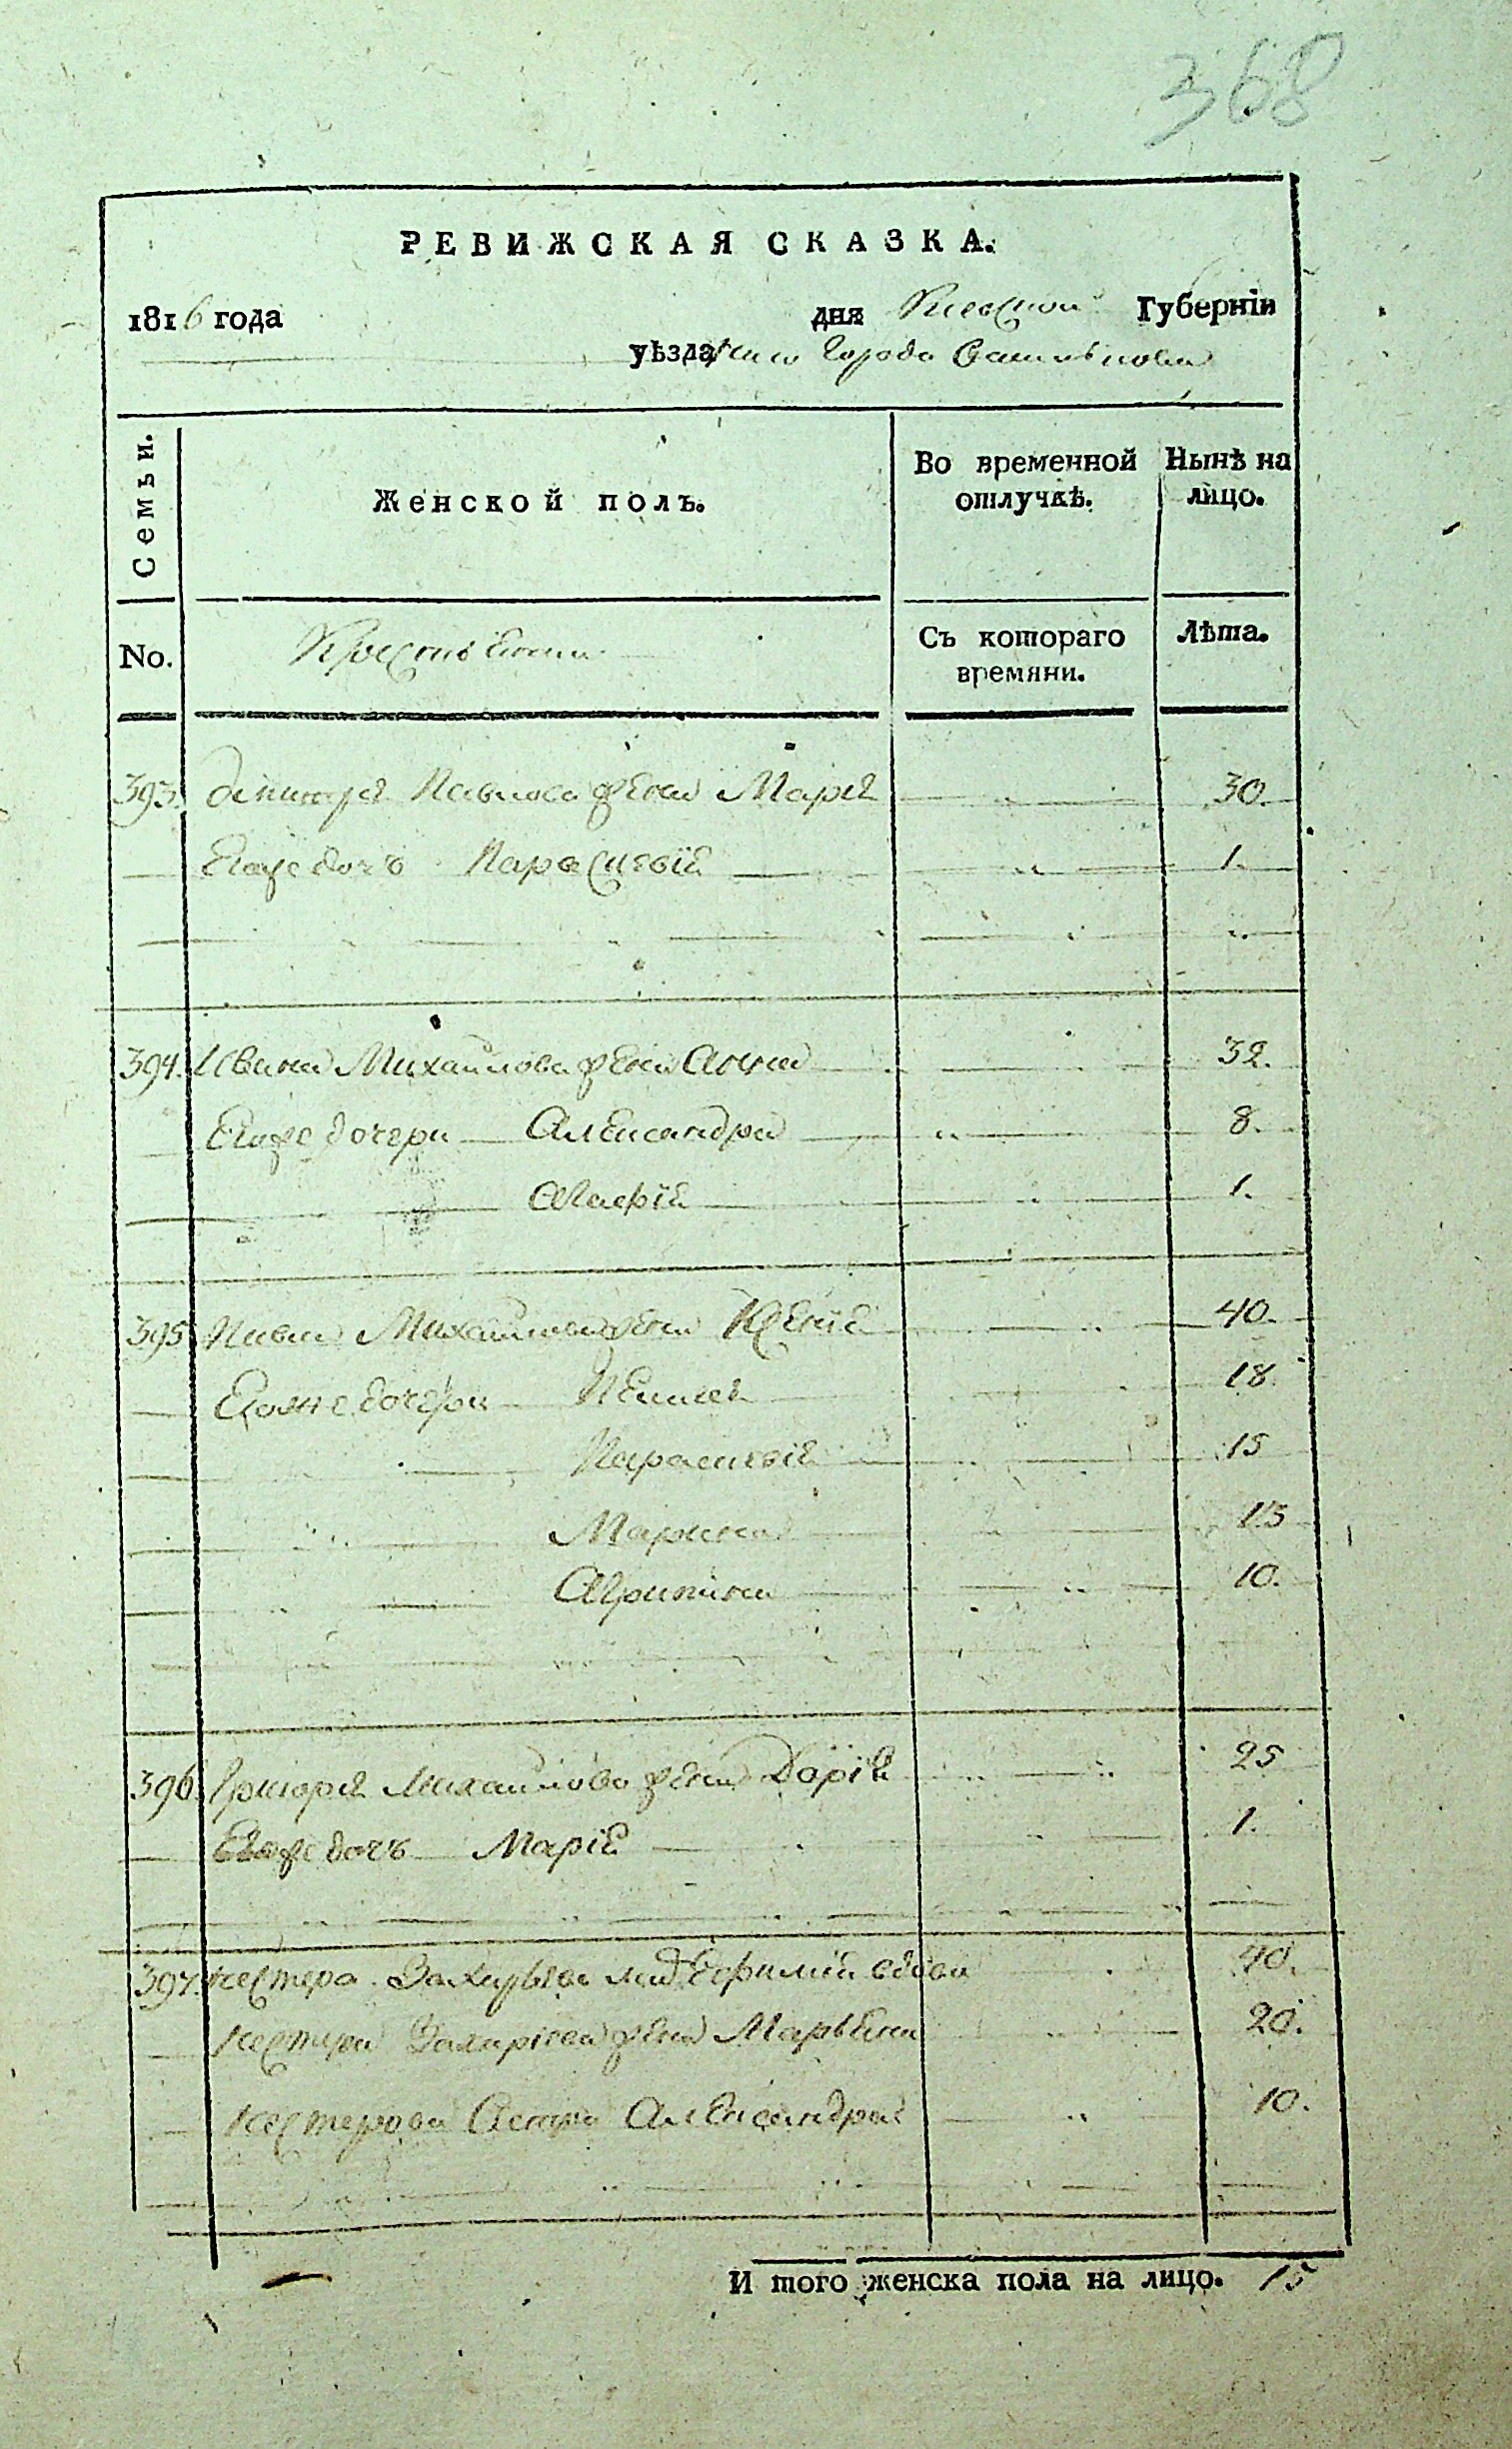 368
РЕВИЖСКАЯ СКАЗКА.
1816 года дня Киевской Губерніи
уѣзда города
Семьи. Женской полъ. Во временной отлучкѣ. Нынѣ на лицо.
No. Съ котораго времяни. Лѣта.
393. Павлова жена Марія 30.
Егоже дочь Параскевія 1.
394. Ивана Михайлова жена Анна 32.
Егоже дочери Александра 8.
Марія 1.
395 Михайлова жена 40.
Егоже дочери 18.
Параскевія 15
Марина 13
10.
396. Григорія Михайлова жена Дарія 25
Егоже дочь Марія 1.
397. Нестера Ефимія вдова 40.
жена 20.
Нестерова Сестра Александра 10.
И того женска пола на лицо. 15